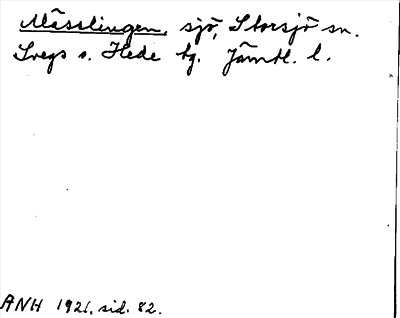 Mässlingen, sjö, Storsjö sn.
Svegs o. Hede tg. Jämtl. l.
ANH 1921. sid. 82.